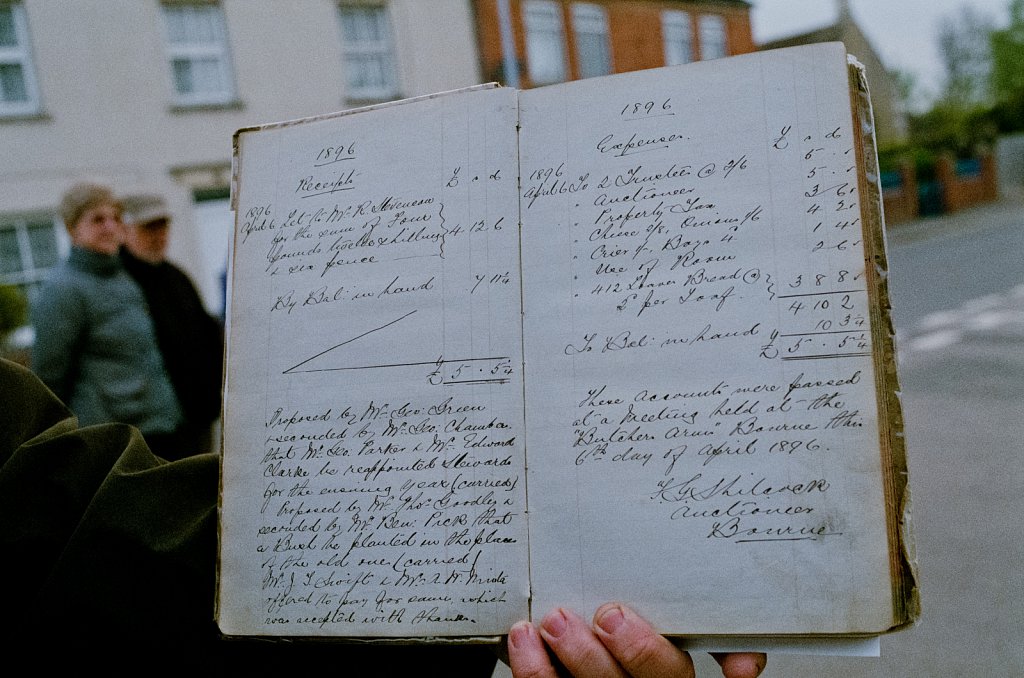 1896
Receipts
£ s d
1896
April 6 Let to Mr. R. Stevenson
for the sum of Four
pounds twelve shillings
& six pence 4 12 6
By Bal: in hand 7 11¼
£ 5 . 5¼
Proposed by Mr. Geo: Green
& seconded by Mr. Geo. Chambers
that Mr. Geo. Parker & Mr. Edward
Clarke be reappointed Stewards
for the ensuing year (carried)
Proposed by Mr. Thos. Goodley &
seconded by Mr. Ben: Pick that
a Bush be planted in the place
of the old one (carried)
Mr. J. T. Swift & Mr.
offered to pay for same, which
was accepted with thanks.
1896
Expenses.
£ s d
1896
April 6 To 2 Trustees @ 2/6 5 . .
" Auctioneer 5 . .
" Property Tax 3 6
" Cheese 3/8, Onions /6 4 2
" Crier /-, Boys 4d 1 4
" Use of Room 2 6
" 412 Loaves Bread @
2d per Loaf. 3 8 8
4 10 2
To Bal: in hand 10 3¼
£ 5 . 5¼
These Accounts were passed
at a Meeting held at the
"Butchers Arms" Bourne this
6th day of April 1896.
F. G. Shilcock
Auctioneer
Bourne